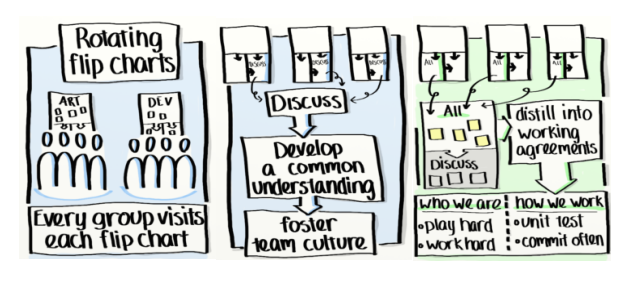 Rotating
flip charts
ART
DEV
Every group visits
each flip chart
Discuss
Discuss
Discuss
Discuss
Develop
a common
understanding
foster
team culture
All
All
All
All
Discuss
distill into
working
agreements
who we are
• play hard
• work hard
how we work
• unit test
• commit often